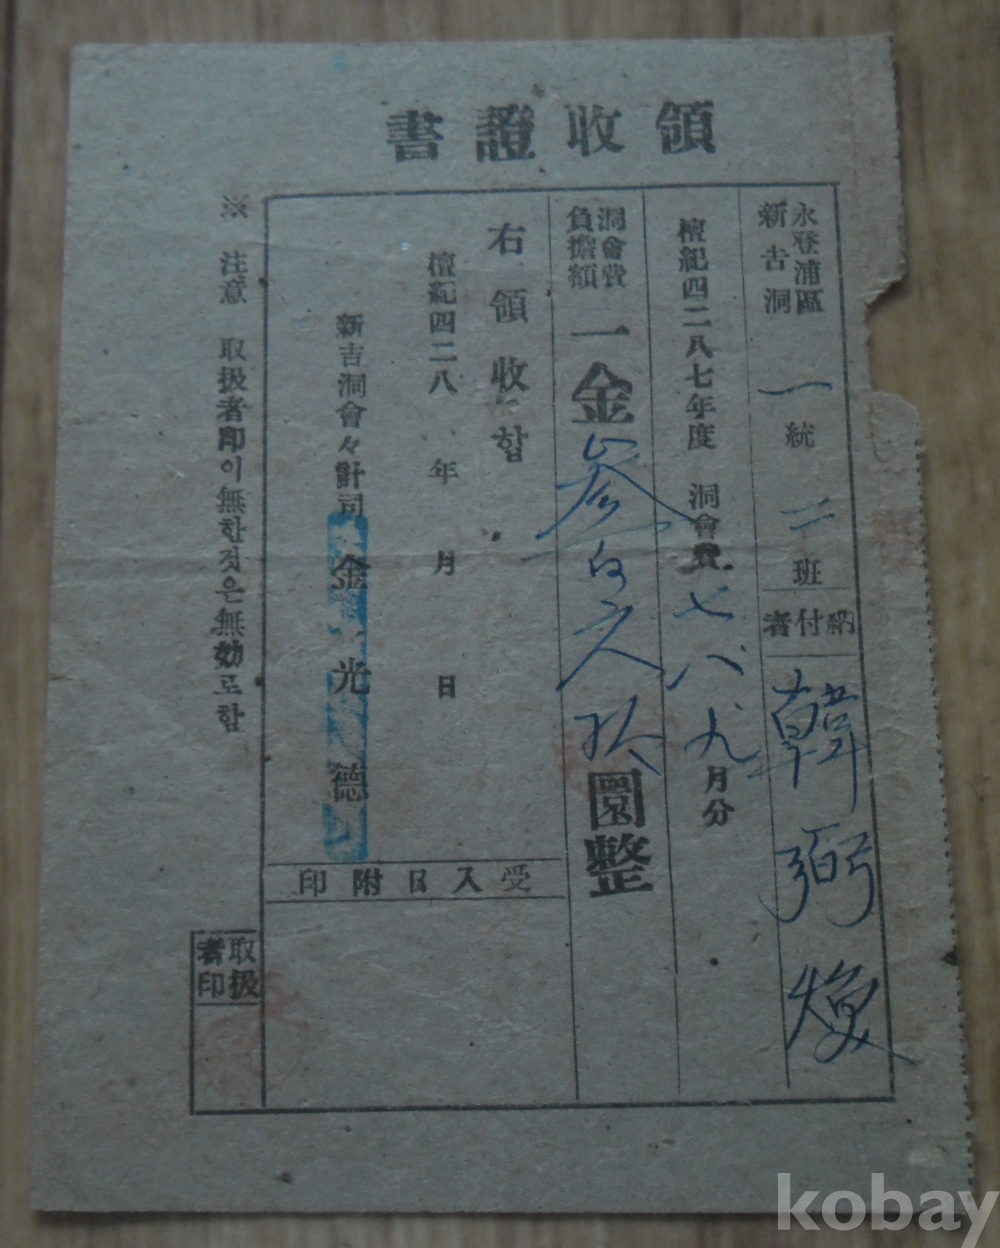 領收證書
永登浦區
新吉洞
一統 二班
納付者 韓弼煥
檀紀四二八七年度 洞會費 七 八 九 月分
洞會費
負擔額
一金 參百六拾 圜整
右領收합
檀紀四二八 年 月 日
新吉洞會々計司 金光德
受入日附印
※ 注意 取扱者印이無한것은無効로함
取扱
者印
kobay